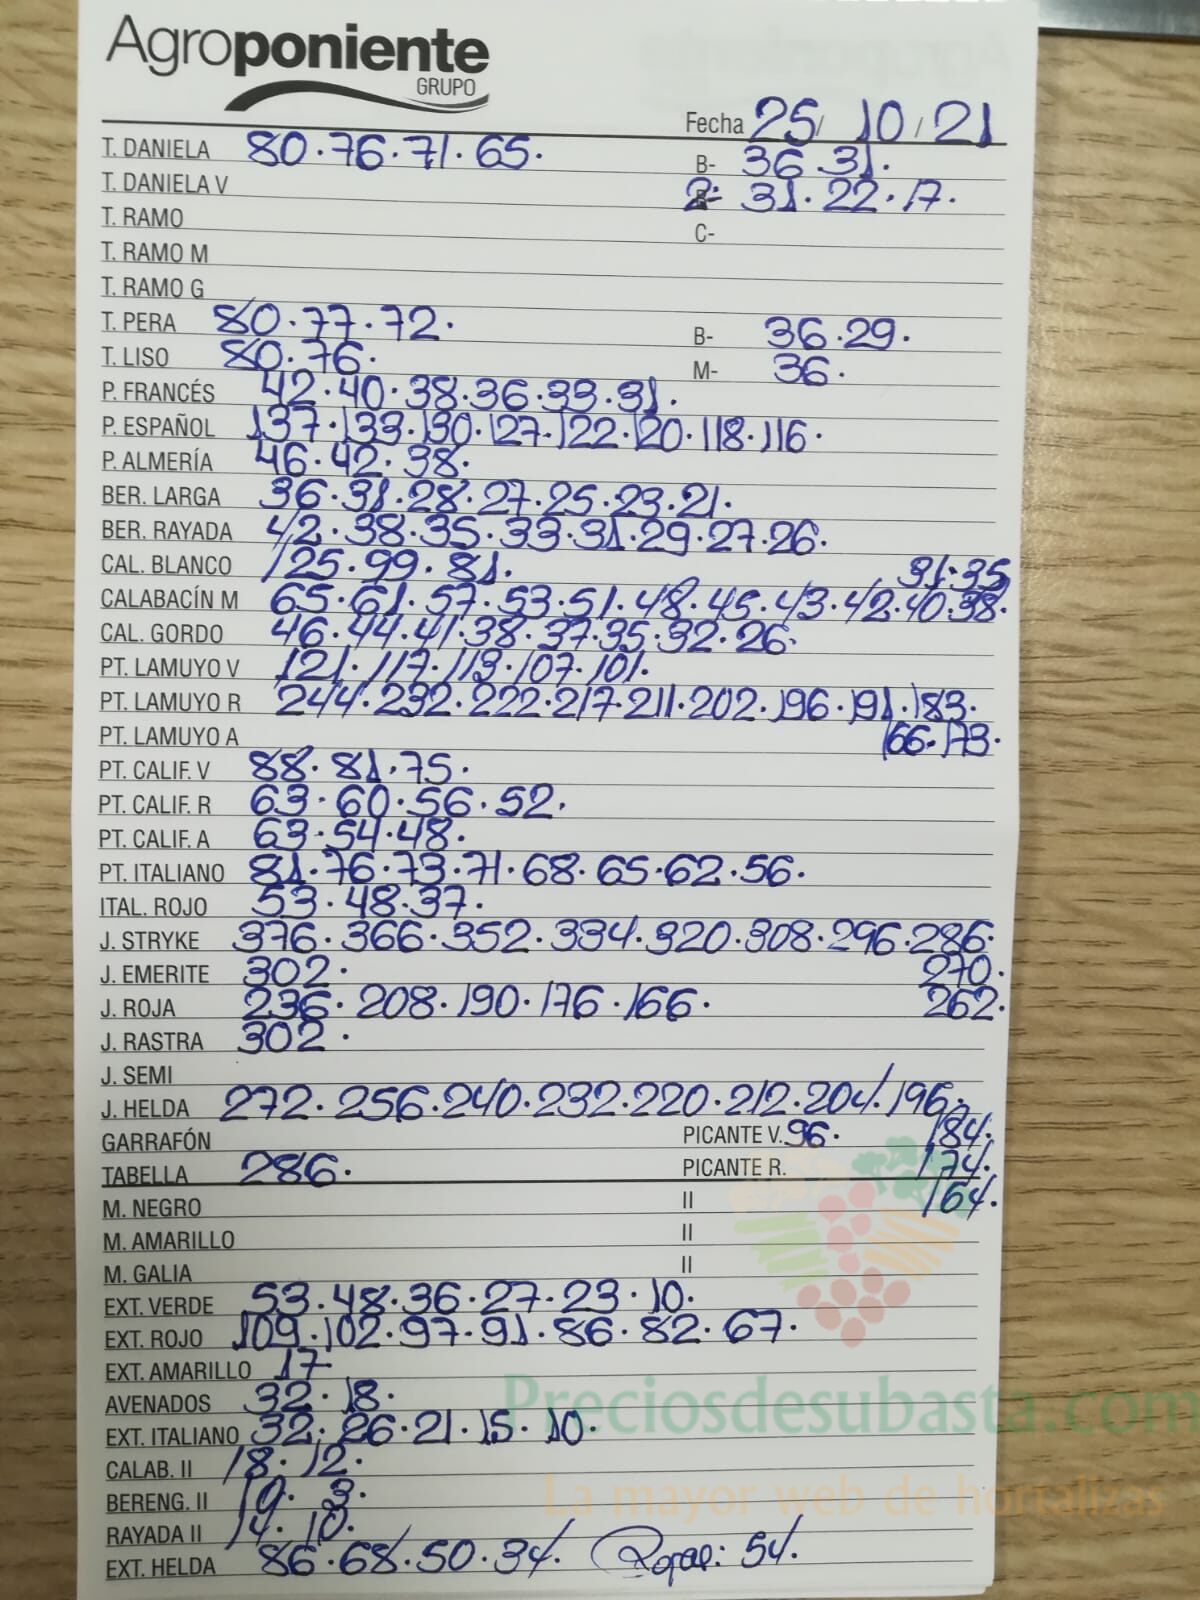 Agroponiente
GRUPO
Fecha 25/ 10/ 21
T. DANIELA 80.76.71.65. B- 36.31.
T. DANIELA V 2- 31.22.17.
T. RAMO C-
T. RAMO M
T. RAMO G
T. PERA 80.77.72. B- 36.29.
T. LISO 80.76. M- 36.
P. FRANCÉS 42.40.38.36.33.31.
P. ESPAÑOL 137.133.130.127.122.120.118.116.
P. ALMERÍA 46.42.38.
BER. LARGA 36.31.28.27.25.23.21.
BER. RAYADA 42.38.35.33.31.29.27.26.
CAL. BLANCO 125.99.81. 31.35
CALABACÍN M 65.61.57.53.51.48.45.43.42.40.38.
CAL. GORDO 46.44.41.38.37.35.32.26.
PT. LAMUYO V 121.117.113.107.101.
PT. LAMUYO R 244.232.222.217.211.202.196.191.183.
PT. LAMUYO A 166.173.
PT. CALIF. V 88.81.75.
PT. CALIF. R 63.60.56.52.
PT. CALIF. A 63.54.48.
PT. ITALIANO 81.76.73.71.68.65.62.56.
ITAL. ROJO 53.48.37.
J. STRYKE 376.366.352.334.320.308.296.286.
J. EMERITE 302. 270.
J. ROJA 236.208.190.176.166. 262.
J. RASTRA 302.
J. SEMI
J. HELDA 272.256.240.232.220.212.204.196.
GARRAFÓN PICANTE V. 96. 184.
TABELLA 286. PICANTE R. 174.
M. NEGRO II 164.
M. AMARILLO II
M. GALIA II
EXT. VERDE 53.48.36.27.23.10.
EXT. ROJO 109.102.97.91.86.82.67.
EXT. AMARILLO 17
AVENADOS 32.18.
EXT. ITALIANO 32.26.21.15.10.
CALAB. II 18.12.
BERENG. II 10. 3.
RAYADA II 14.10.
EXT. HELDA 86.68.50.34. Rojae: 54.
Preciosdesubasta.com
La mayor web de hortalizas